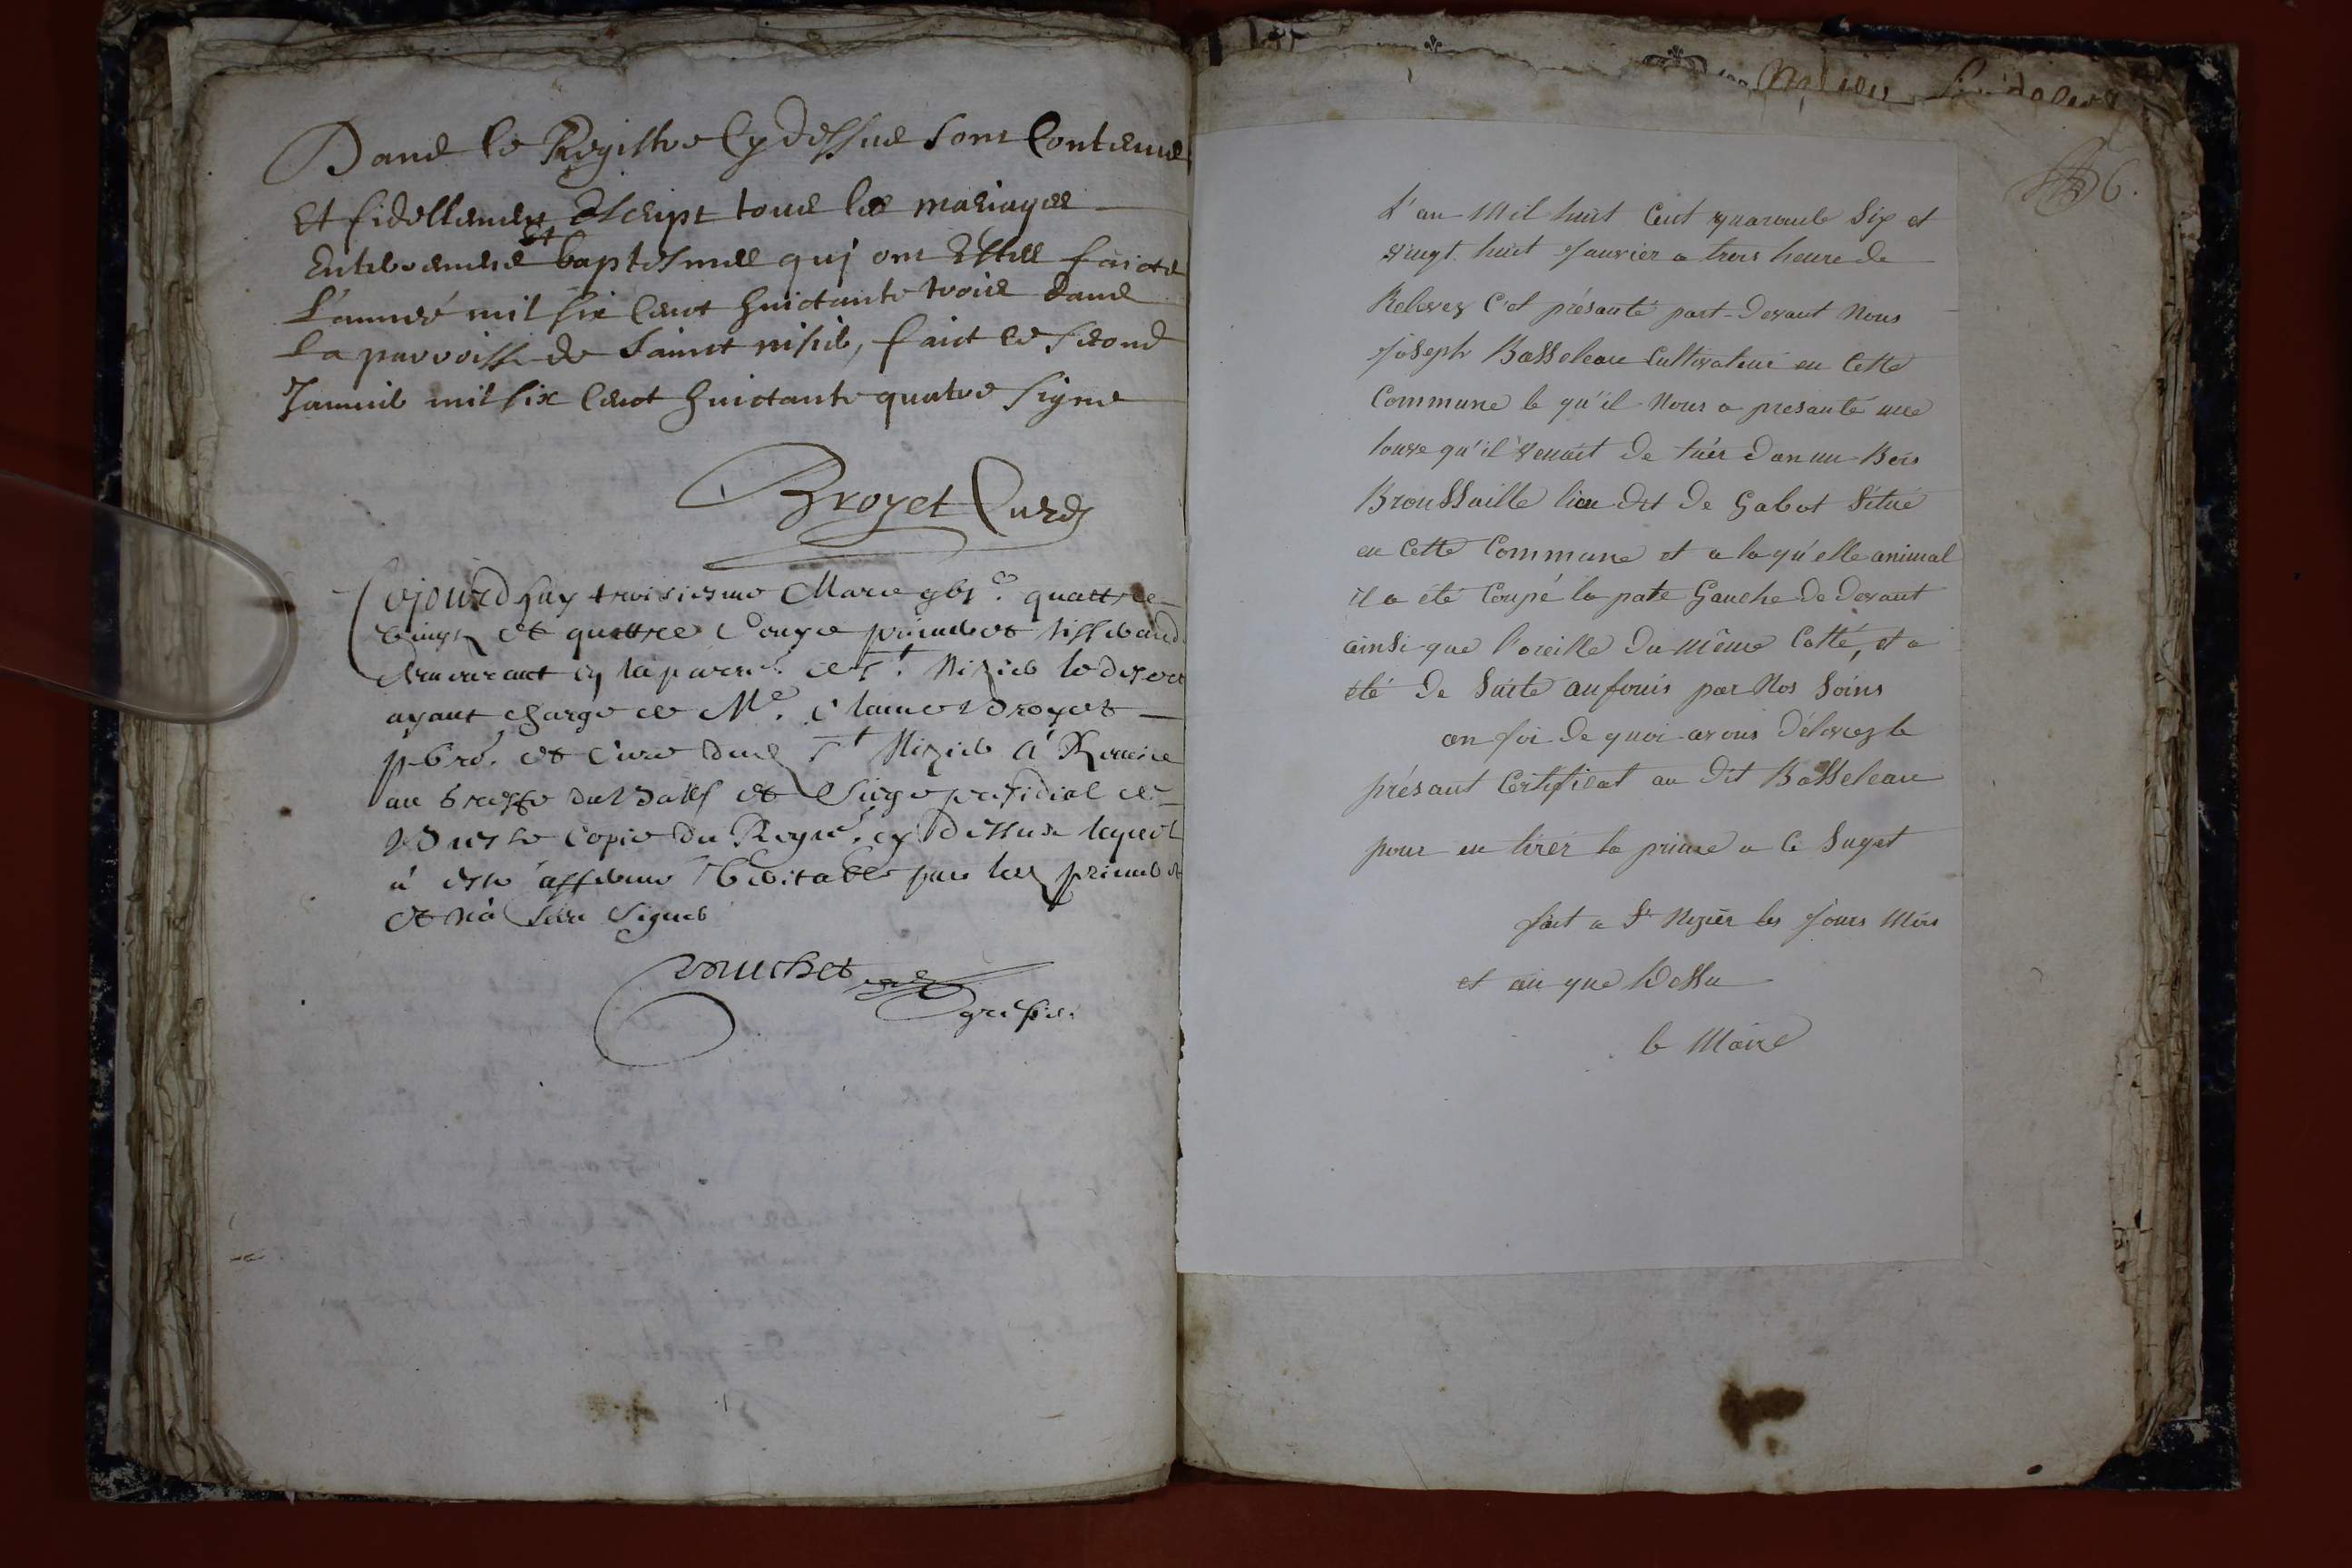 Dans le Registre Cy dessus sont Contenus
Et fidellement Escript tous les mariages
Enterremens et baptesmes qui ont Estés faicts
L'année mil six Cent huictante trois dans
La parroisse de Sainct nisié, faict le second
Janvié mil six Cent huictante quatre signé
Broyet Curé
Cejourdhuy troisiesme Mars gbjc quattre
vingt et quattre
demeurant en la parre de St Nizier le desert
ayant charge de Me Claude Broyet
pbre et Curé dud St Nizier a Remise
au Greffe du Balf et Siege presidial de
Bresse Copie du Regre cy dessus lequel
a esté affirmé veritable par led
et n'a sceu signer
greffier
6.
L'an Mil huit Cent quarante Six et
vingt huit Janvier a trois heure de
Relevez C'et présanté part-devant Nous
Joseph Basseleau Cultivateur en Cette
Commune le qu'il Nous a presanté une
louve qu'il venait de tuér dan un Bois
Broussaille lieu dit de Gabot Situé
en Cette Commune et a laqu'elle animal
il a été Coupé la pate Gauche de devant
ainsi que l'oreille du même Catté, et a
été de Suite anfouis par Nos Soins
an foi de quoi avons délevrez le
présant Certificat au dit Basseleau
pour en tirér la prime a Ce Suget
fait a St Nizier les Jours Mois
et an que Dessu
le Maire